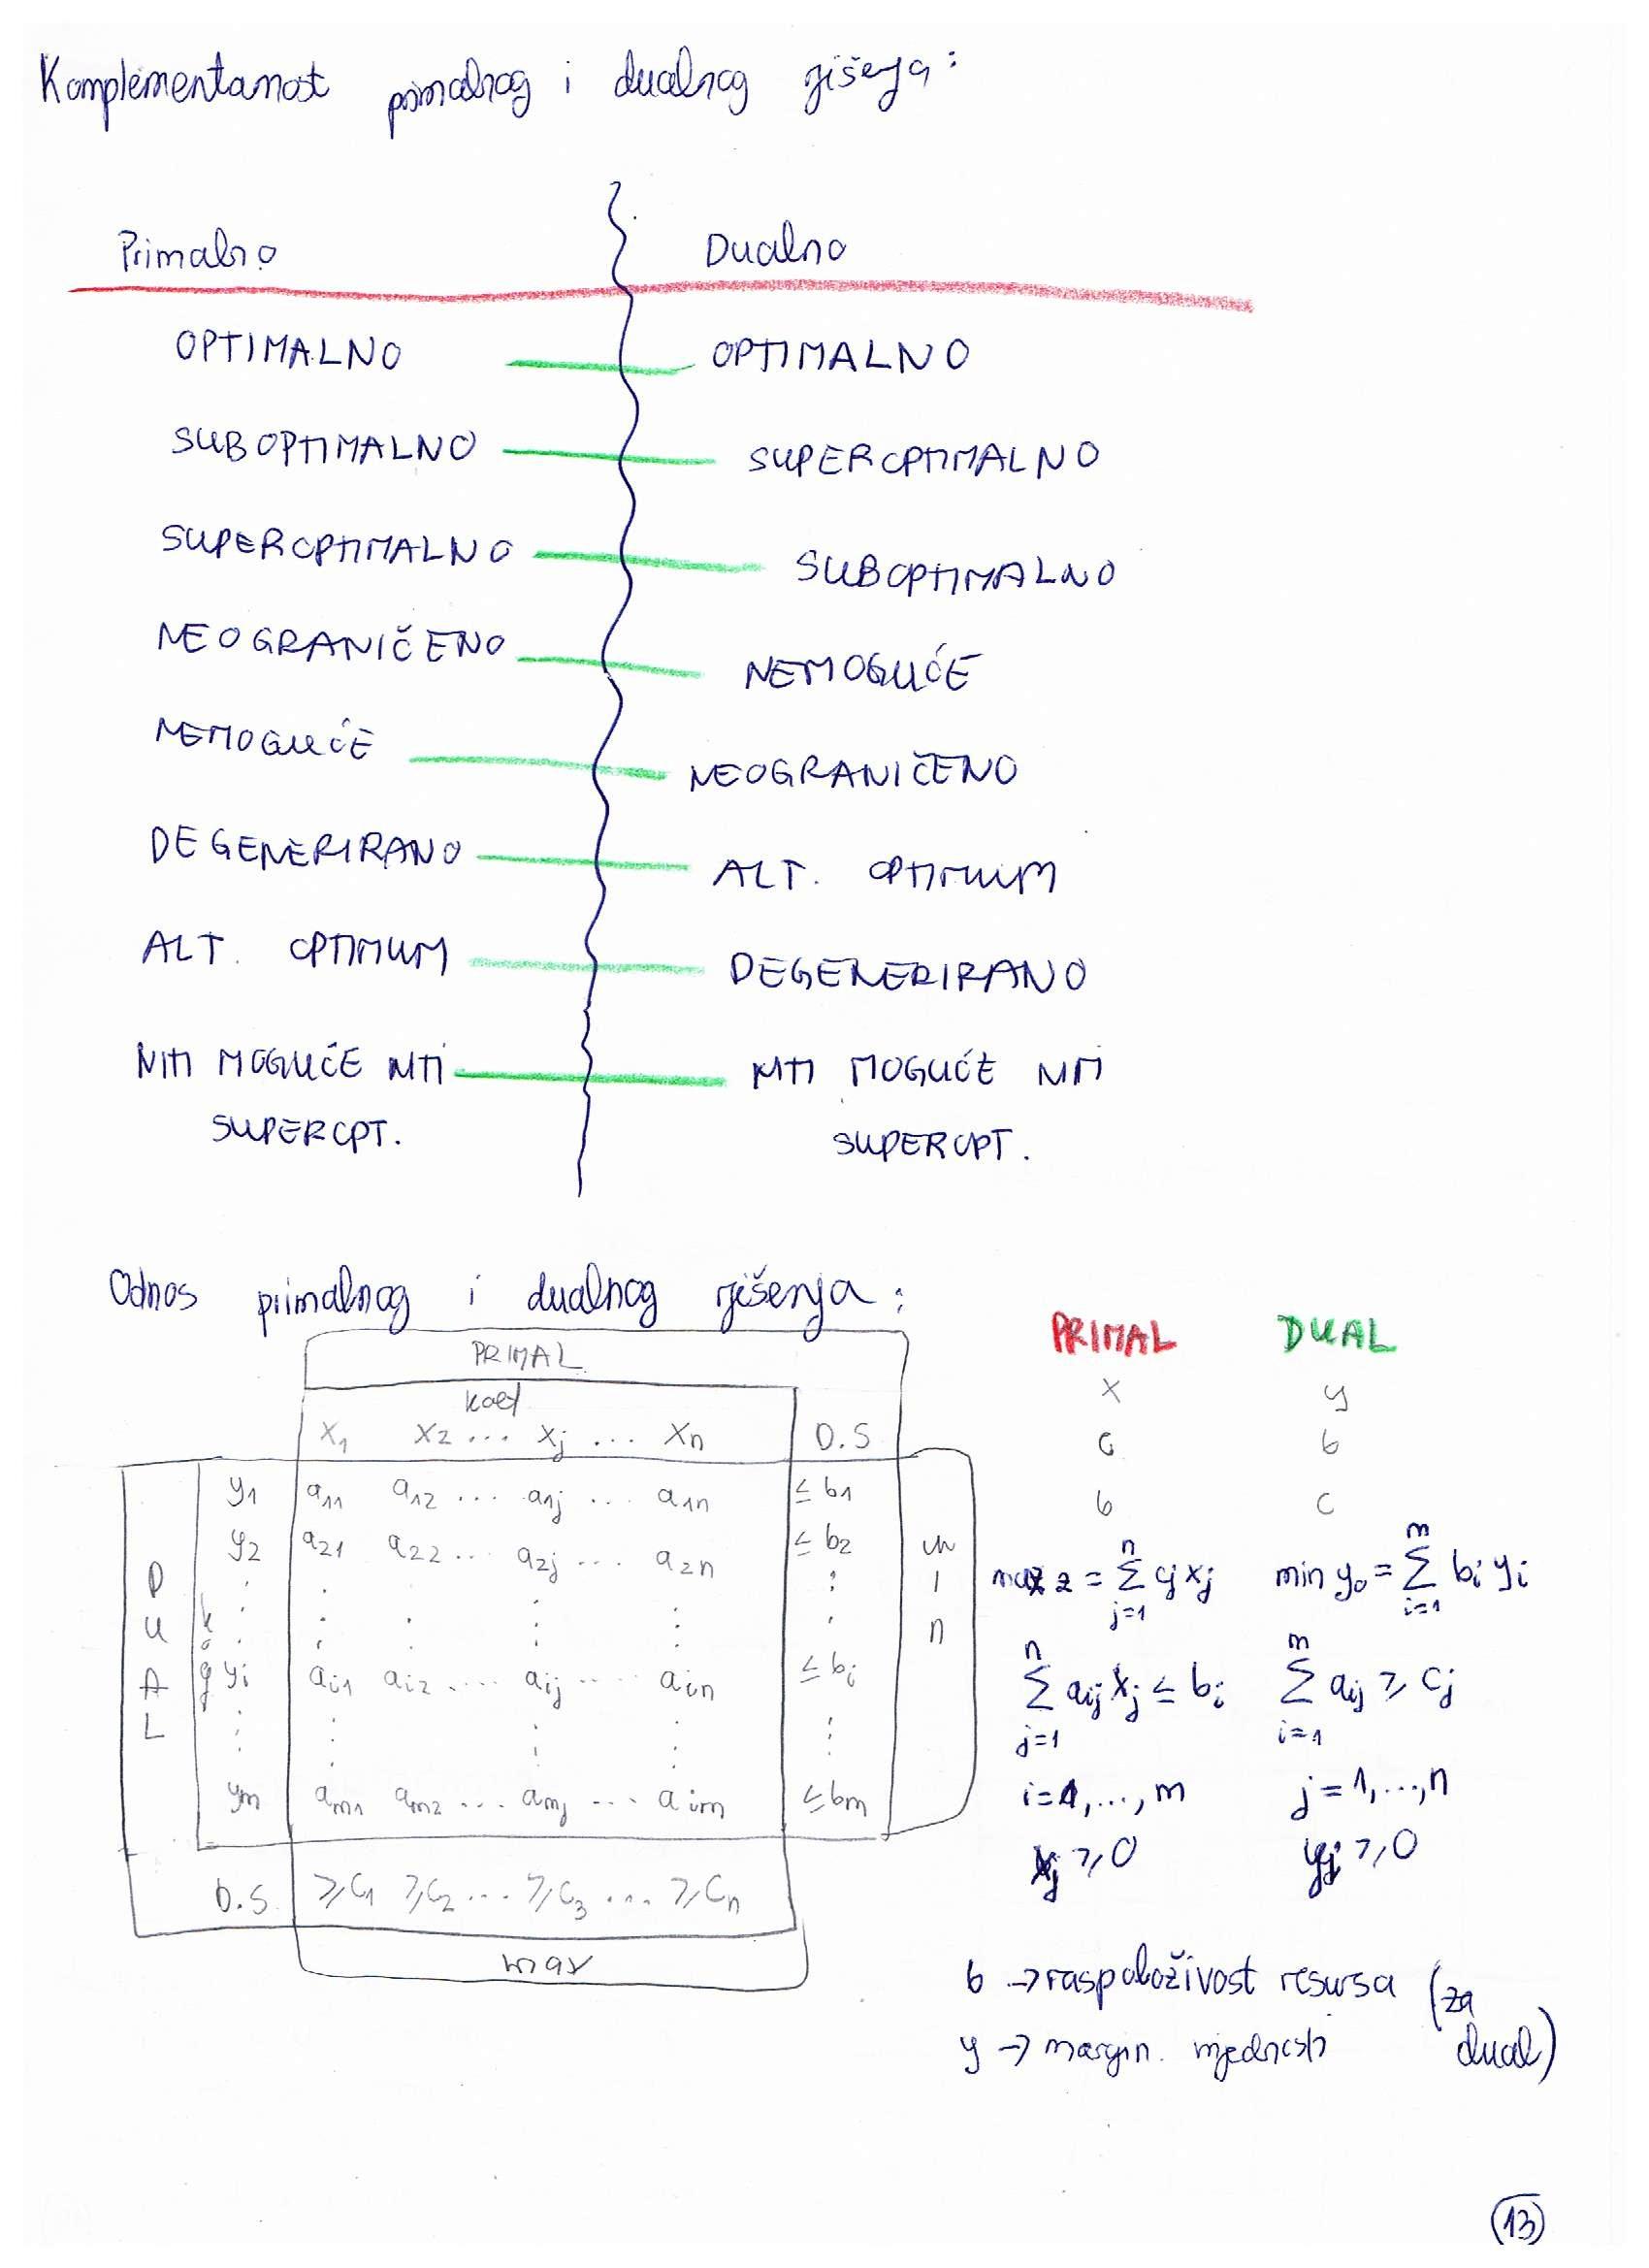 Komplementarnost primalnog i dualnog rješenja:
Primalno Dualno
OPTIMALNO OPTIMALNO
SUBOPTIMALNO SUPEROPTIMALNO
SUPEROPTIMALNO SUBOPTIMALNO
NEOGRANIČENO NEMOGUĆE
NEMOGUĆE NEOGRANIČENO
DEGENERIRANO ALT. OPTIMUM
ALT. OPTIMUM DEGENERIRANO
NITI MOGUĆE NITI NITI MOGUĆE NITI
SUPEROPT. SUPEROPT.
Odnos primalnog i dualnog rješenja:
PRIMAL
koef
x₁ x₂ ... xⱼ ... xₙ D.S
DUAL
y₁ a₁₁ a₁₂ ... a₁ⱼ ... a₁ₙ ≤ b₁
y₂ a₂₁ a₂₂ ... a₂ⱼ ... a₂ₙ ≤ b₂
yᵢ aᵢ₁ aᵢ₂ .... aᵢⱼ .... aᵢₙ ≤ bᵢ
yₘ aₘ₁ aₘ₂ ... aₘⱼ ... aᵢₘ ≤ bₘ
min
D.S. ≥C₁ ≥C₂ ... ≥C₃ ... ≥Cₙ
max
PRIMAL DUAL
x y
c b
b c
max z = Σ_{j=1}^{n} cⱼxⱼ min y₀ = Σ_{i=1}^{m} bᵢyᵢ
Σ_{j=1}^{n} aᵢⱼxⱼ ≤ bᵢ Σ_{i=1}^{m} aᵢⱼ ≥ cⱼ
i=1,...,m j=1,...,n
xⱼ ≥ 0 yⱼ ≥ 0
b → raspoloživost resursa (za
y → margin. vrijednosti dual)
13